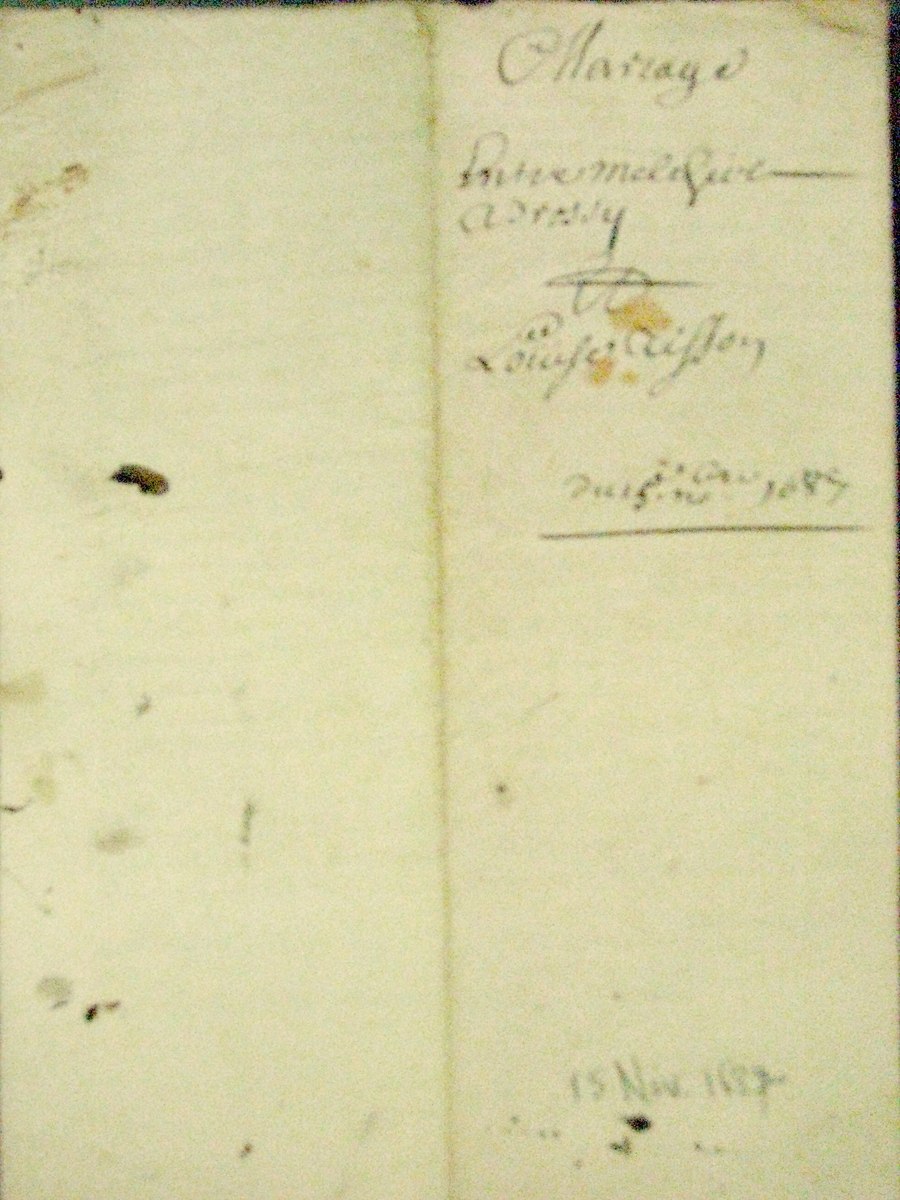 Mariage
Entre melchior
Adrossy
Et
Louise Aisson
du 15 1687
15 Nov. 1687